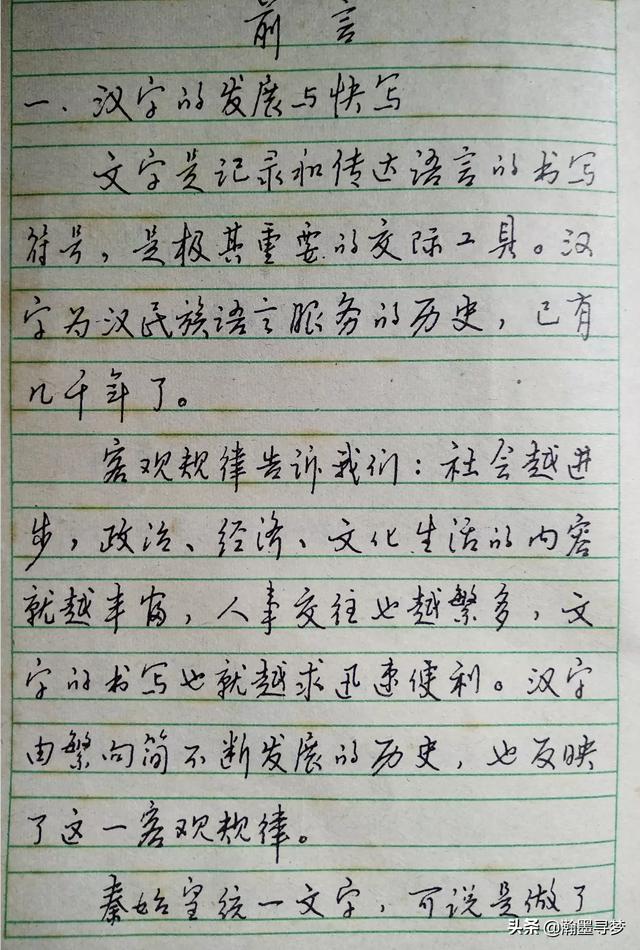 前言
一、汉字的发展与快写
文字是记录和传达语言的书写
符号，是极其重要的交际工具。汉
字为汉民族语言服务的历史，已有
几千年了。
客观规律告诉我们：社会越进
步，政治、经济、文化生活的内容
就越丰富，人事交往也越繁多，文
字的书写也就越求迅速便利。汉字
由繁向简不断发展的历史，也反映
了这一客观规律。
秦始皇统一文字，可说是做了
头条 @瀚墨寻梦